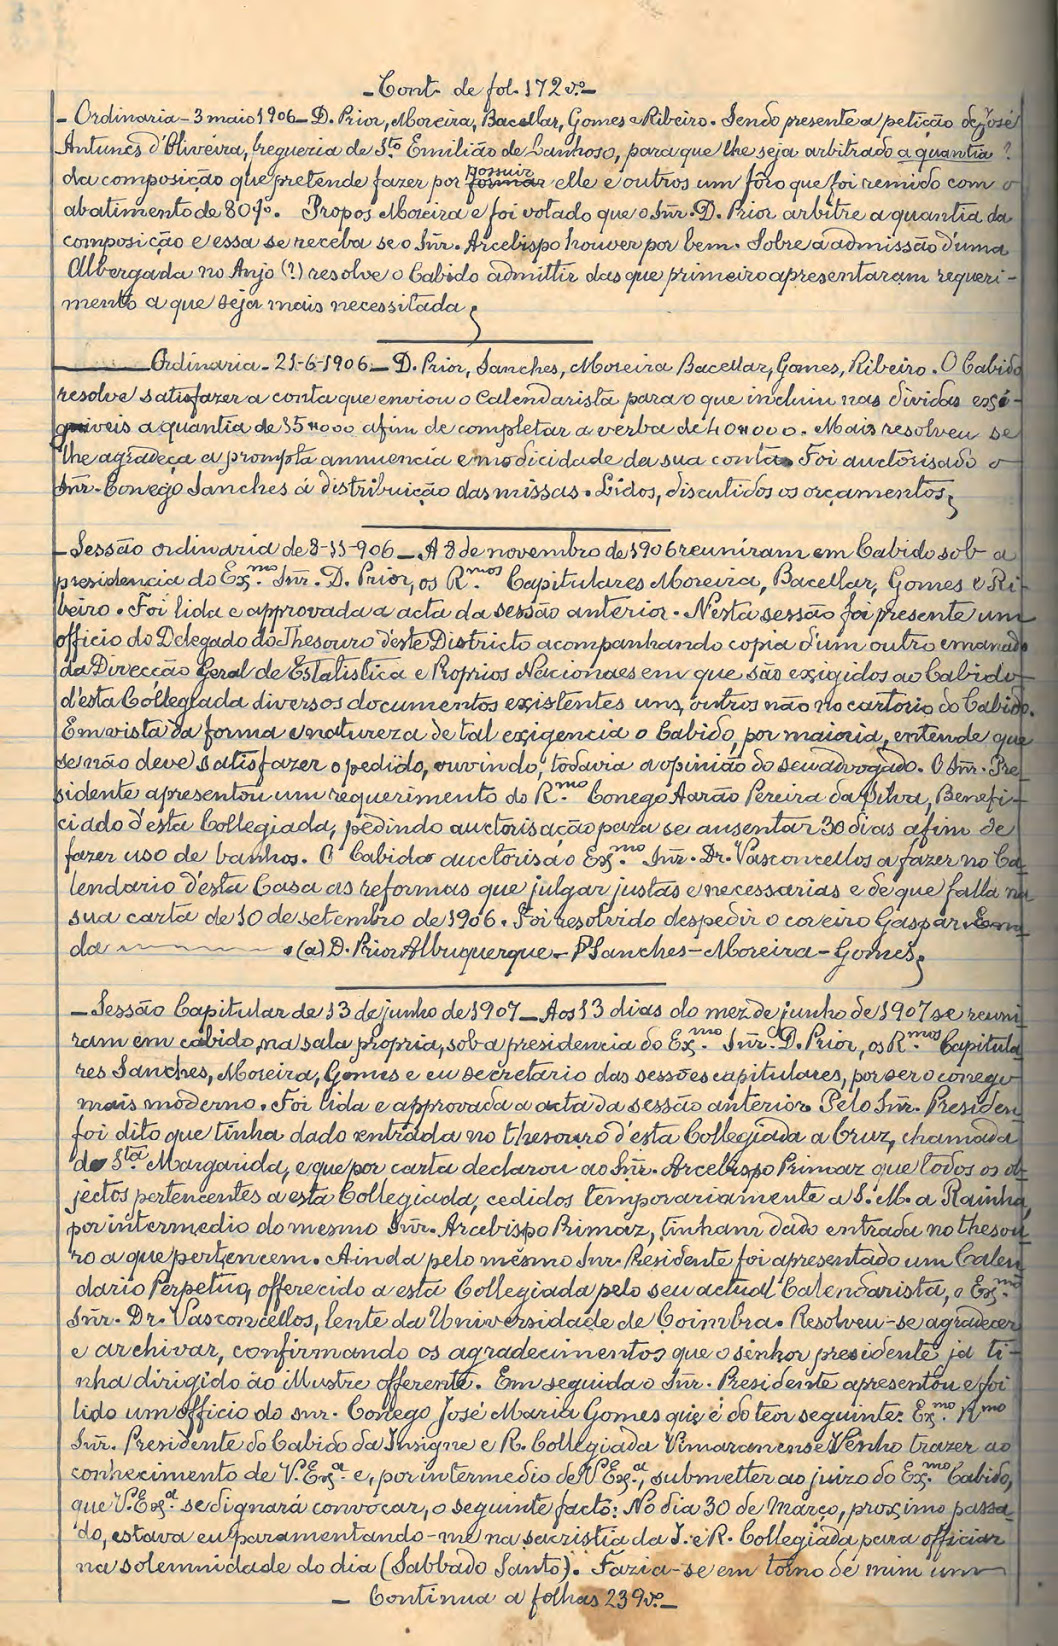 - Cont. de fol. 172 v.º -
- Ordinaria - 3 maio 1906 - D. Prior, Moreira, Bacellar, Gomes e Ribeiro. Sendo presente a petição de José
Antunes d'Oliveira, freguezia de S.to Emilião de Lanhoso, para que lhe seja arbitrado a quantia ?
da composição que pretende fazer por possuir formar elle e outros um fôro que foi remido com o
abatimento de 80%. Propos Moreira e foi votado que o Snr. D. Prior arbitre a quantia da
composição e essa se receba se o Snr. Arcebispo houver por bem. Sobre a admissão d'uma
Albergada no Anjo (?) resolve o Cabido admittir das que primeiro apresentaram requeri-
mento a que seja mais necessitada;
Ordinaria - 21-6-1906 - D. Prior, Sanches, Moreira Bacellar, Gomes, Ribeiro. O Cabido
resolve satisfazer a conta que enviou o Calendarista para o que incluiu nas dividas exi-
guiveis a quantia de 35#000 afim de completar a verba de 40#000. Mais resolveu se
lhe agradeça a prompta annuencia e modicidade da sua conta. Foi auctorisado o
Snr. Conego Sanches á distribuição das missas. Lidos, discutidos os orçamentos;
- Sessão ordinaria de 8-11-906 - A 8 de novembro de 1906 reuniram em Cabido sob a
presidencia do Ex.mo Snr. D. Prior, os R.mos Capitulares Moreira, Bacellar, Gomes e Ri-
beiro. Foi lida e approvada a acta da sessão anterior. Nesta sessão foi presente um
officio do Delegado do Thesouro d'este Districto acompanhando copia d'um outro emanado
da Direcção Geral de Estatistica e Proprios Nacionaes em que são exigidos ao Cabido
d'esta Collegiada diversos documentos existentes uns, outros não no cartorio do Cabido.
Em vista da forma e natureza de tal exigencia o Cabido, por maioria, entende que
se não deve satisfazer o pedido, ouvindo, todavia a opinião do seu advogado. O Snr. Pre
sidente apresentou um requerimento do R.mo Conego Aarão Pereira da Silva, Benefi-
ciado d'esta Collegiada, pedindo auctorisação para se ausentar 30 dias afim de
fazer uso de banhos. O Cabido auctorisa o Ex.mo Snr. Dr. Vasconcellos a fazer no Ca
lendario d'esta Casa as reformas que julgar justas e necessarias e de que falla na
sua carta de 10 de setembro de 1906. Foi resolvido despedir o coreiro Gaspar
da . (a) D. Prior Albuquerque - Sanches - Moreira - Gomes;
- Sessão Capitular de 13 de junho de 1907 - Aos 13 dias do mez de junho de 1907 se reuni
ram em cabido, na sala propria, sob a presidencia do Ex.mo Snr. D. Prior, os R.mos Capitula
res Sanches, Moreira, Gomes e eu secretario das sessões capitulares, por ser o conego
mais moderno. Foi lida e approvada a acta da sessão anterior. Pelo Snr. Presiden
foi dito que tinha dado entrada no thesouro d'esta Collegiada a Cruz, chamada
de S.ta Margarida, e que por carta declarou ao Snr. Arcebispo Primaz que todos os ob
jectos pertencentes a esta Collegiada, cedidos temporariamente a S. M. a Rainha,
por intermedio do mesmo Snr. Arcebispo Primaz, tinham dado entrada no thesou
ro a que pertencem. Ainda pelo mesmo Snr. Presidente foi apresentado um Calen
dario Perpetuo, offerecido a esta Collegiada pelo seu actual Calendarista, o Ex.mo
Snr. Dr. Vasconcellos, lente da Universidade de Coimbra. Resolveu-se agradecer
e archivar, confirmando os agradecimentos que o senhor presidente já ti-
nha dirigido ao illustre offerente. Em seguida o Snr. Presidente apresentou e foi
lido um officio do snr. Conego José Maria Gomes que é do teor seguinte: Ex.mo R.mo
Snr. Presidente do Cabido da Insigne e R. Collegiada Vimaranense Venho trazer ao
conhecimento de V. Ex.a e, por intermedio de V. Ex.a, submetter ao juizo do Ex.mo Cabido,
que V. Ex.a se dignará convocar, o seguinte facto: No dia 30 de Março, proximo passa
do, estava eu paramentando-me na sacristia da I. e R. Collegiada para officiar
na solemnidade do dia (Sabbado Santo). Fazia-se em torno de mim um
- Continua a folhas 239 v.º -